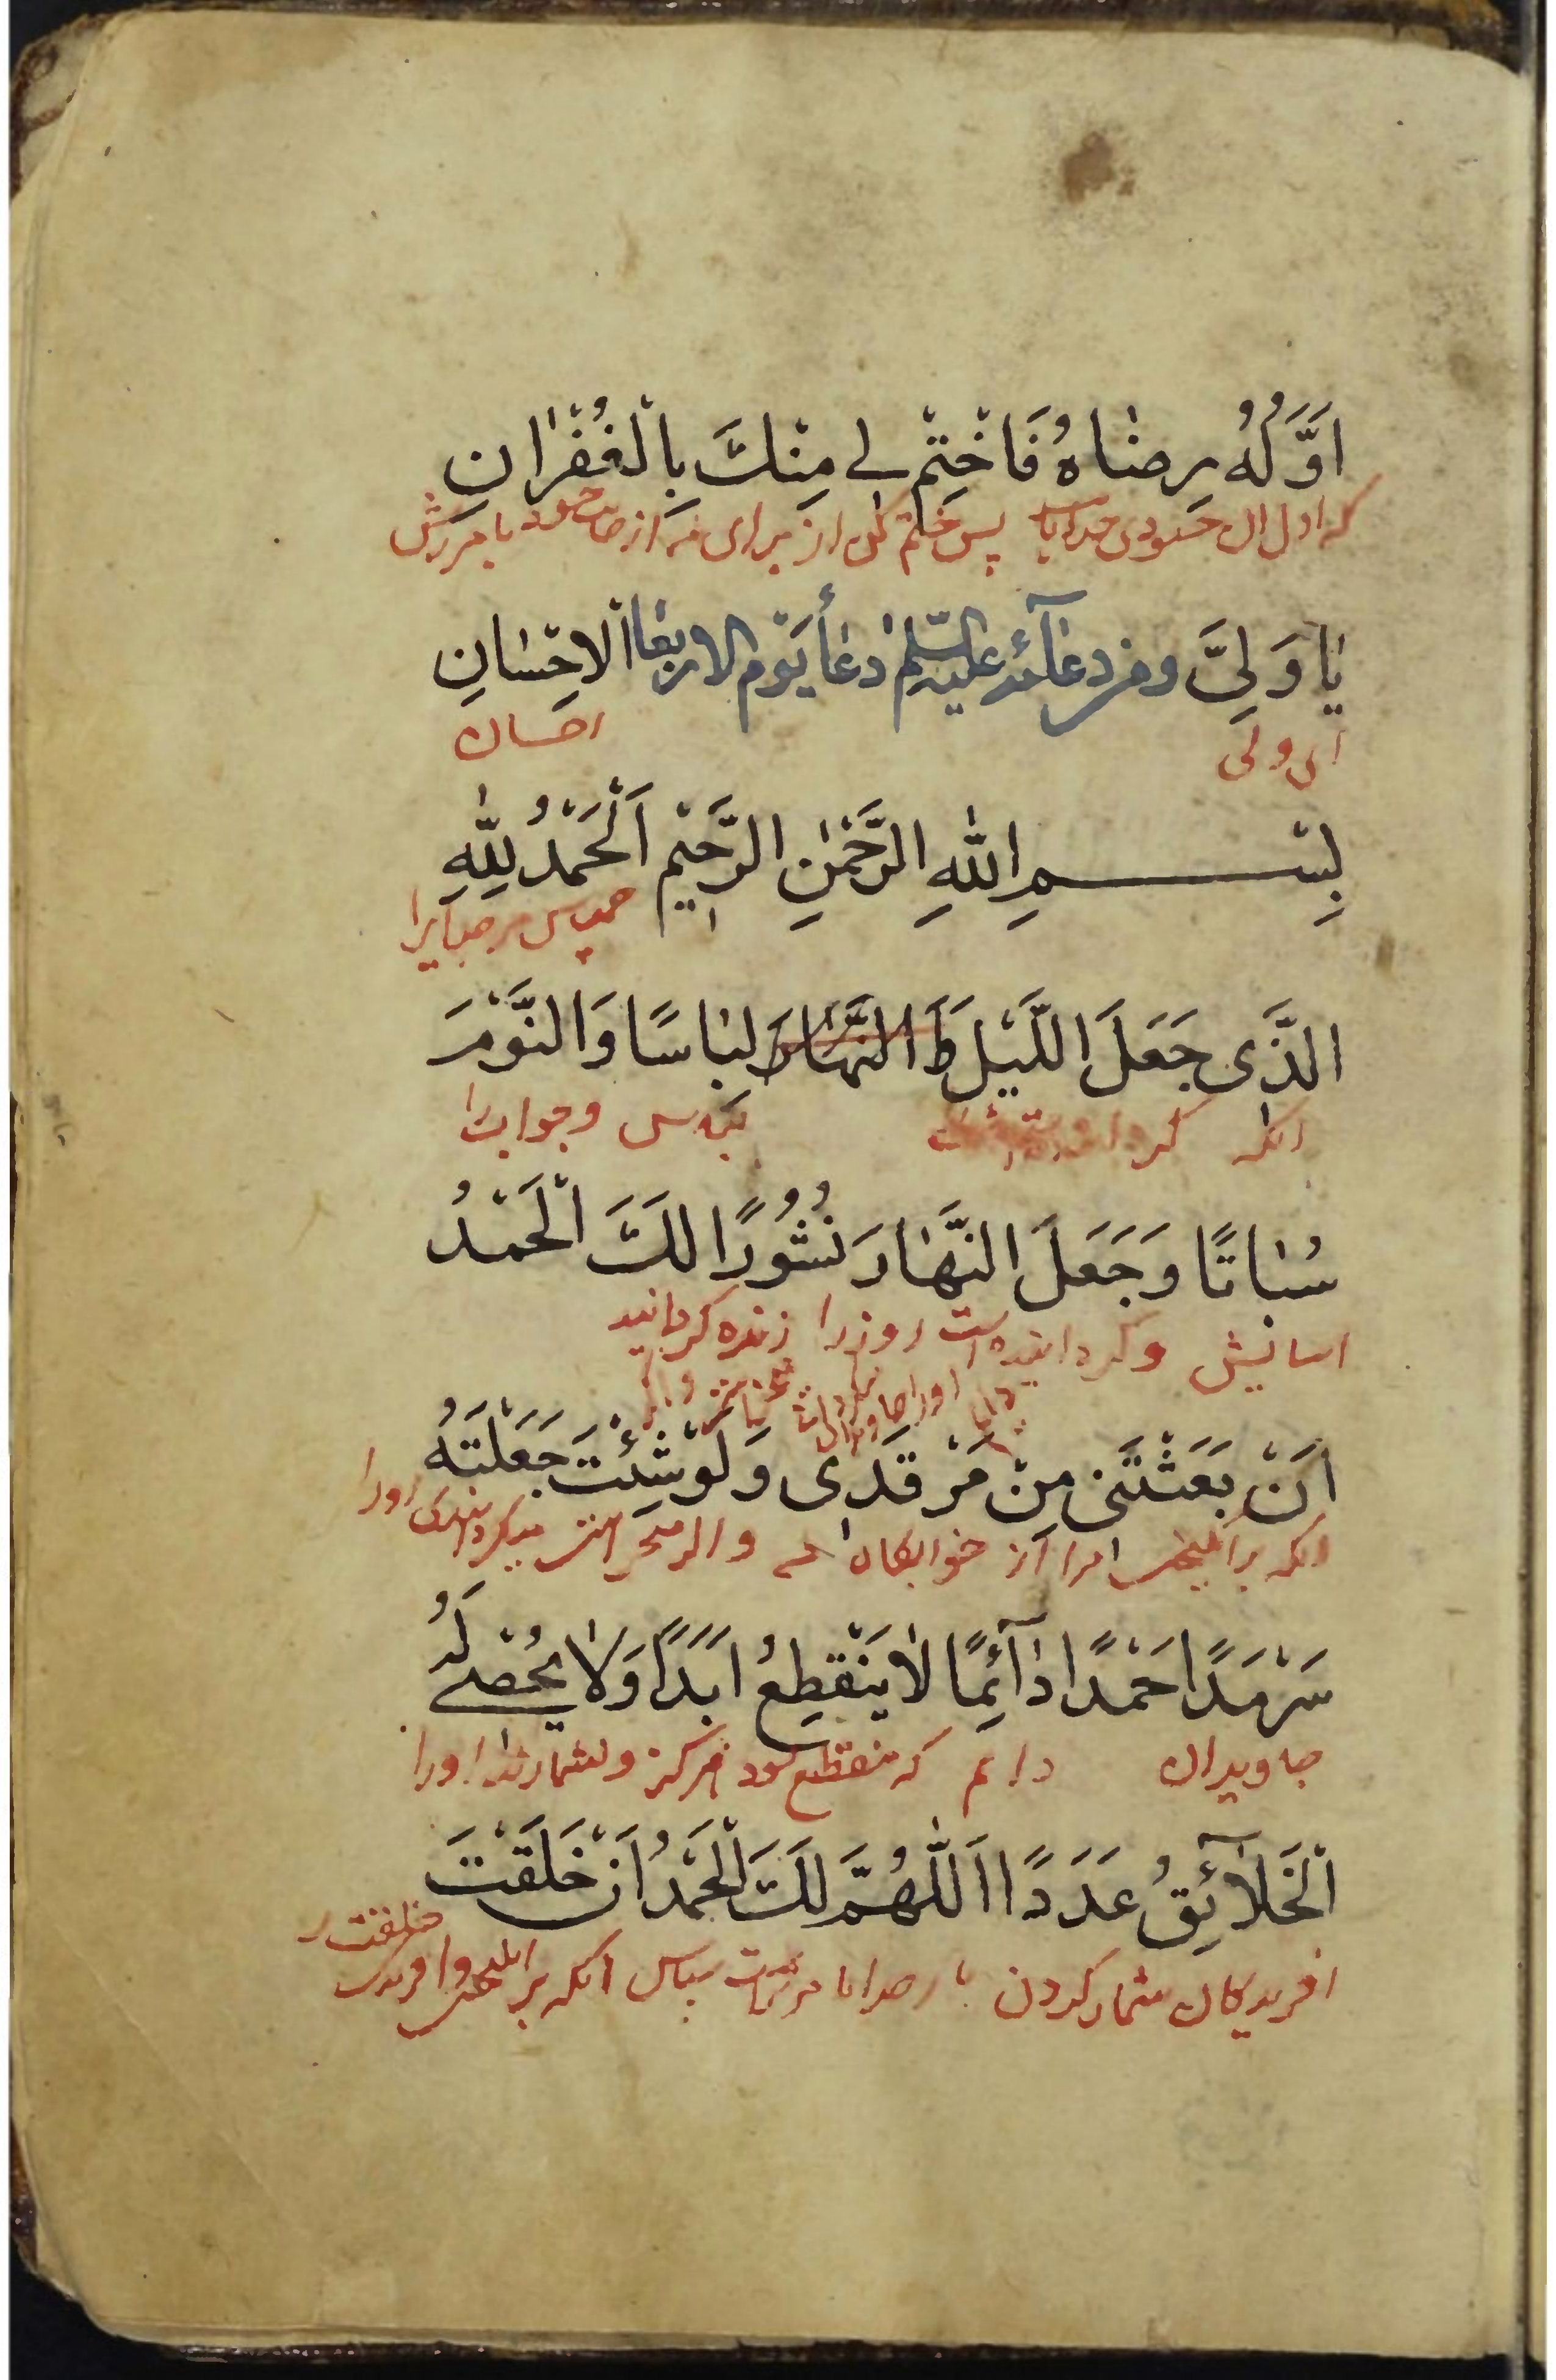 اَوَّلُهُ رِضاهُ فَاخْتِمْ لی مِنْكَ بِالْغُفْرانِ
که اول ان خشنودی خداست پس ختم کن از برای من از جانب خود بامرزش
یا وَلِیَّ ومن دعائه علیه السّلم دعأ یَوْم الاربعا الاِحْسانِ
ای ولی احسان
بِسْمِ اللهِ الرَّحْمٰنِ الرَّحیِم اَلْحَمْدُ لِلّٰهِ
سپاس مر خدایرا
الَّذَی جَعَلَ اللَّیْلَ وَ النَّهارَ لِباسًا وَالنَّوْمَ
انکه کردا و خوابرا
سُباتًا وَجَعَلَ النَّهارَ نُشُورًا لَكَ الْحَمْدُ
اسایش وگردانیده است روز را زنده گردانید
اَنْ بَعَثْتَنی مِنْ مَرْقَدی وَلَوْشِئْتَ جَعَلْتَهُ
انکه برانگیختی مرا از خوابگاه و اگر میخواستی میگردانیدی اورا
سَرْمَدًا حَمْدًا دآئِمًا لا یَنْقَطِعُ اَبَدًا وَلا یُحْصی لَهُ
جاویدان دایم که منقطع نشود هرگز ونشمارند اورا
الْخَلآئِقُ عَدَدًا اَللّٰهُمَّ لَكَ الْحَمْدُ اَنْ خَلَقْتَ
افریدگان شمار کردن بار خدایا مرتراست سپاس انکه